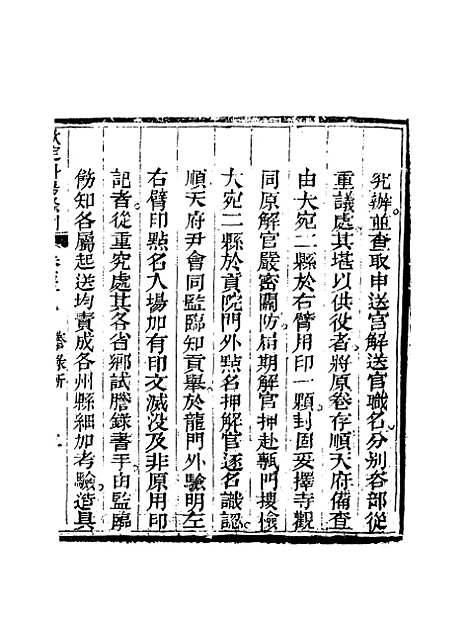 究辦並查取申送官解送官職名分別咨部從
重議處其堪以供役者將原卷存順天府備查
由大宛二縣於右臂用印一顆封固妥擇寺觀
同原解官嚴密關防屆期解官押赴甎門搜檢
大宛二縣於貢院門外點名押解官逐名識認
順天府尹會同監臨知貢舉於龍門外驗明左
右臂印㸃名入場如有印文滅沒及非原用印
記者從重究處其各省鄉試謄錄書手由監臨
飭知各屬起送均責成各州縣細加考驗造具
欽定科場條例 卷三 謄錄所